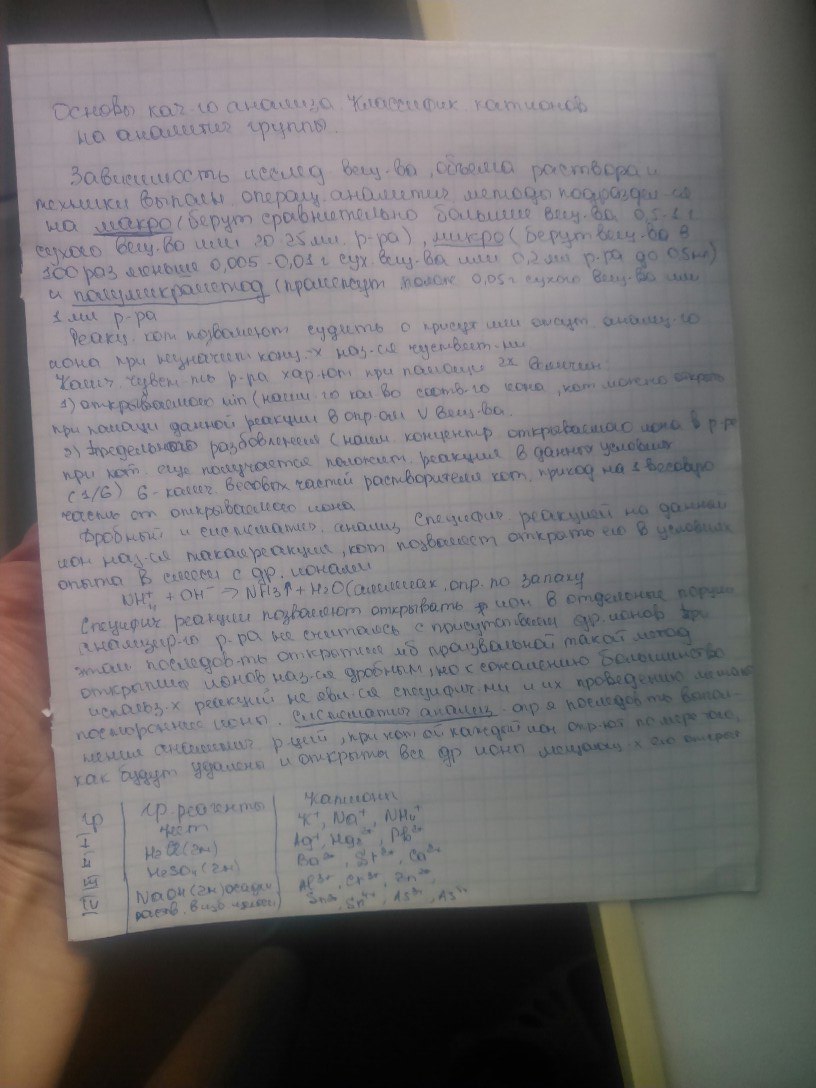 Основы кач-го анализа. Классифик катионов
на аналитич группы.
Зависимость исслед вещ-ва, объема раствора и
техники выполн. операц. аналитич методо подраздел-ся
на макро (берут сравнительно большие вещ-ва 0,5-1 г
сухого вещ-во или 20 25 мл. р-ра), микро (берут вещ-ва в
100 раз меньше 0,005-0,01 г сух. вещ-ва или 0,2 мл р-ра до 0,5 мл)
и полумикрометод (промежут полож 0,05 г сухого вещ-во или
1 мл р-ра
Реакц. кот позволяют судить о присут или отсут. анализ-го
иона при незначит конц-х наз-ся
Колич чувст-ть р-ра хар-ют при помощи 2х величин
1) открываемого min (наим-го кол во соотв-го иона, кот можно открыть
при помощи данной реакции в опр-ом V вещ-ва.
2) Предельного разбовления (наим. концентр открываемого иона в р-ре
при кот. еще получается положит. реакция в данных условиях
(1/G) G-колич. весовых частей растворителя кот. приход на 1 весовую
часть от открываемого иона
Дробный и систематич. анализ Специфич реакцией на данный
ион наз-ся такая реакция, кот позволяет открыть его в условиях
опыта в смеси с др. ионами
NH₄⁺ + OH⁻ → NH3↑ + H₂O (аммиак, опр. по запаху
Специфич реакции позволяют открывать ион в отдельные порции
анализир-го р-ра не считаясь с присутствием др. ионов при
этом последов-ть открытия мб произвольной такой метод
открытия ионов наз-ся дробным, но к сожалению большинство
использ-х реакций не явл-ся специфич-ми и их проведению
посторонние ионы. Систематич анализ - опр я последов ть выпол-
нения аналитич р-ций, при кот ой каждый ион опр-ют по мере того,
как будут удалены и открыты все др ионы мещающ-х его открыт
гр | гр. реагенты | Катионы
I | Нет | K⁺, Na⁺, NH₄⁺
II | HCl (2н) | Ag⁺, Hg₂²⁺, Pb²⁺
III | H₂SO₄ (2н) | Ba²⁺, Sr²⁺, Ca²⁺
IV | NaOH (2н) осадки | Al³⁺, Cr³⁺, Zn²⁺,
раств. в изб | Sn²⁺, Sn⁴⁺, As³⁺, As⁵⁺